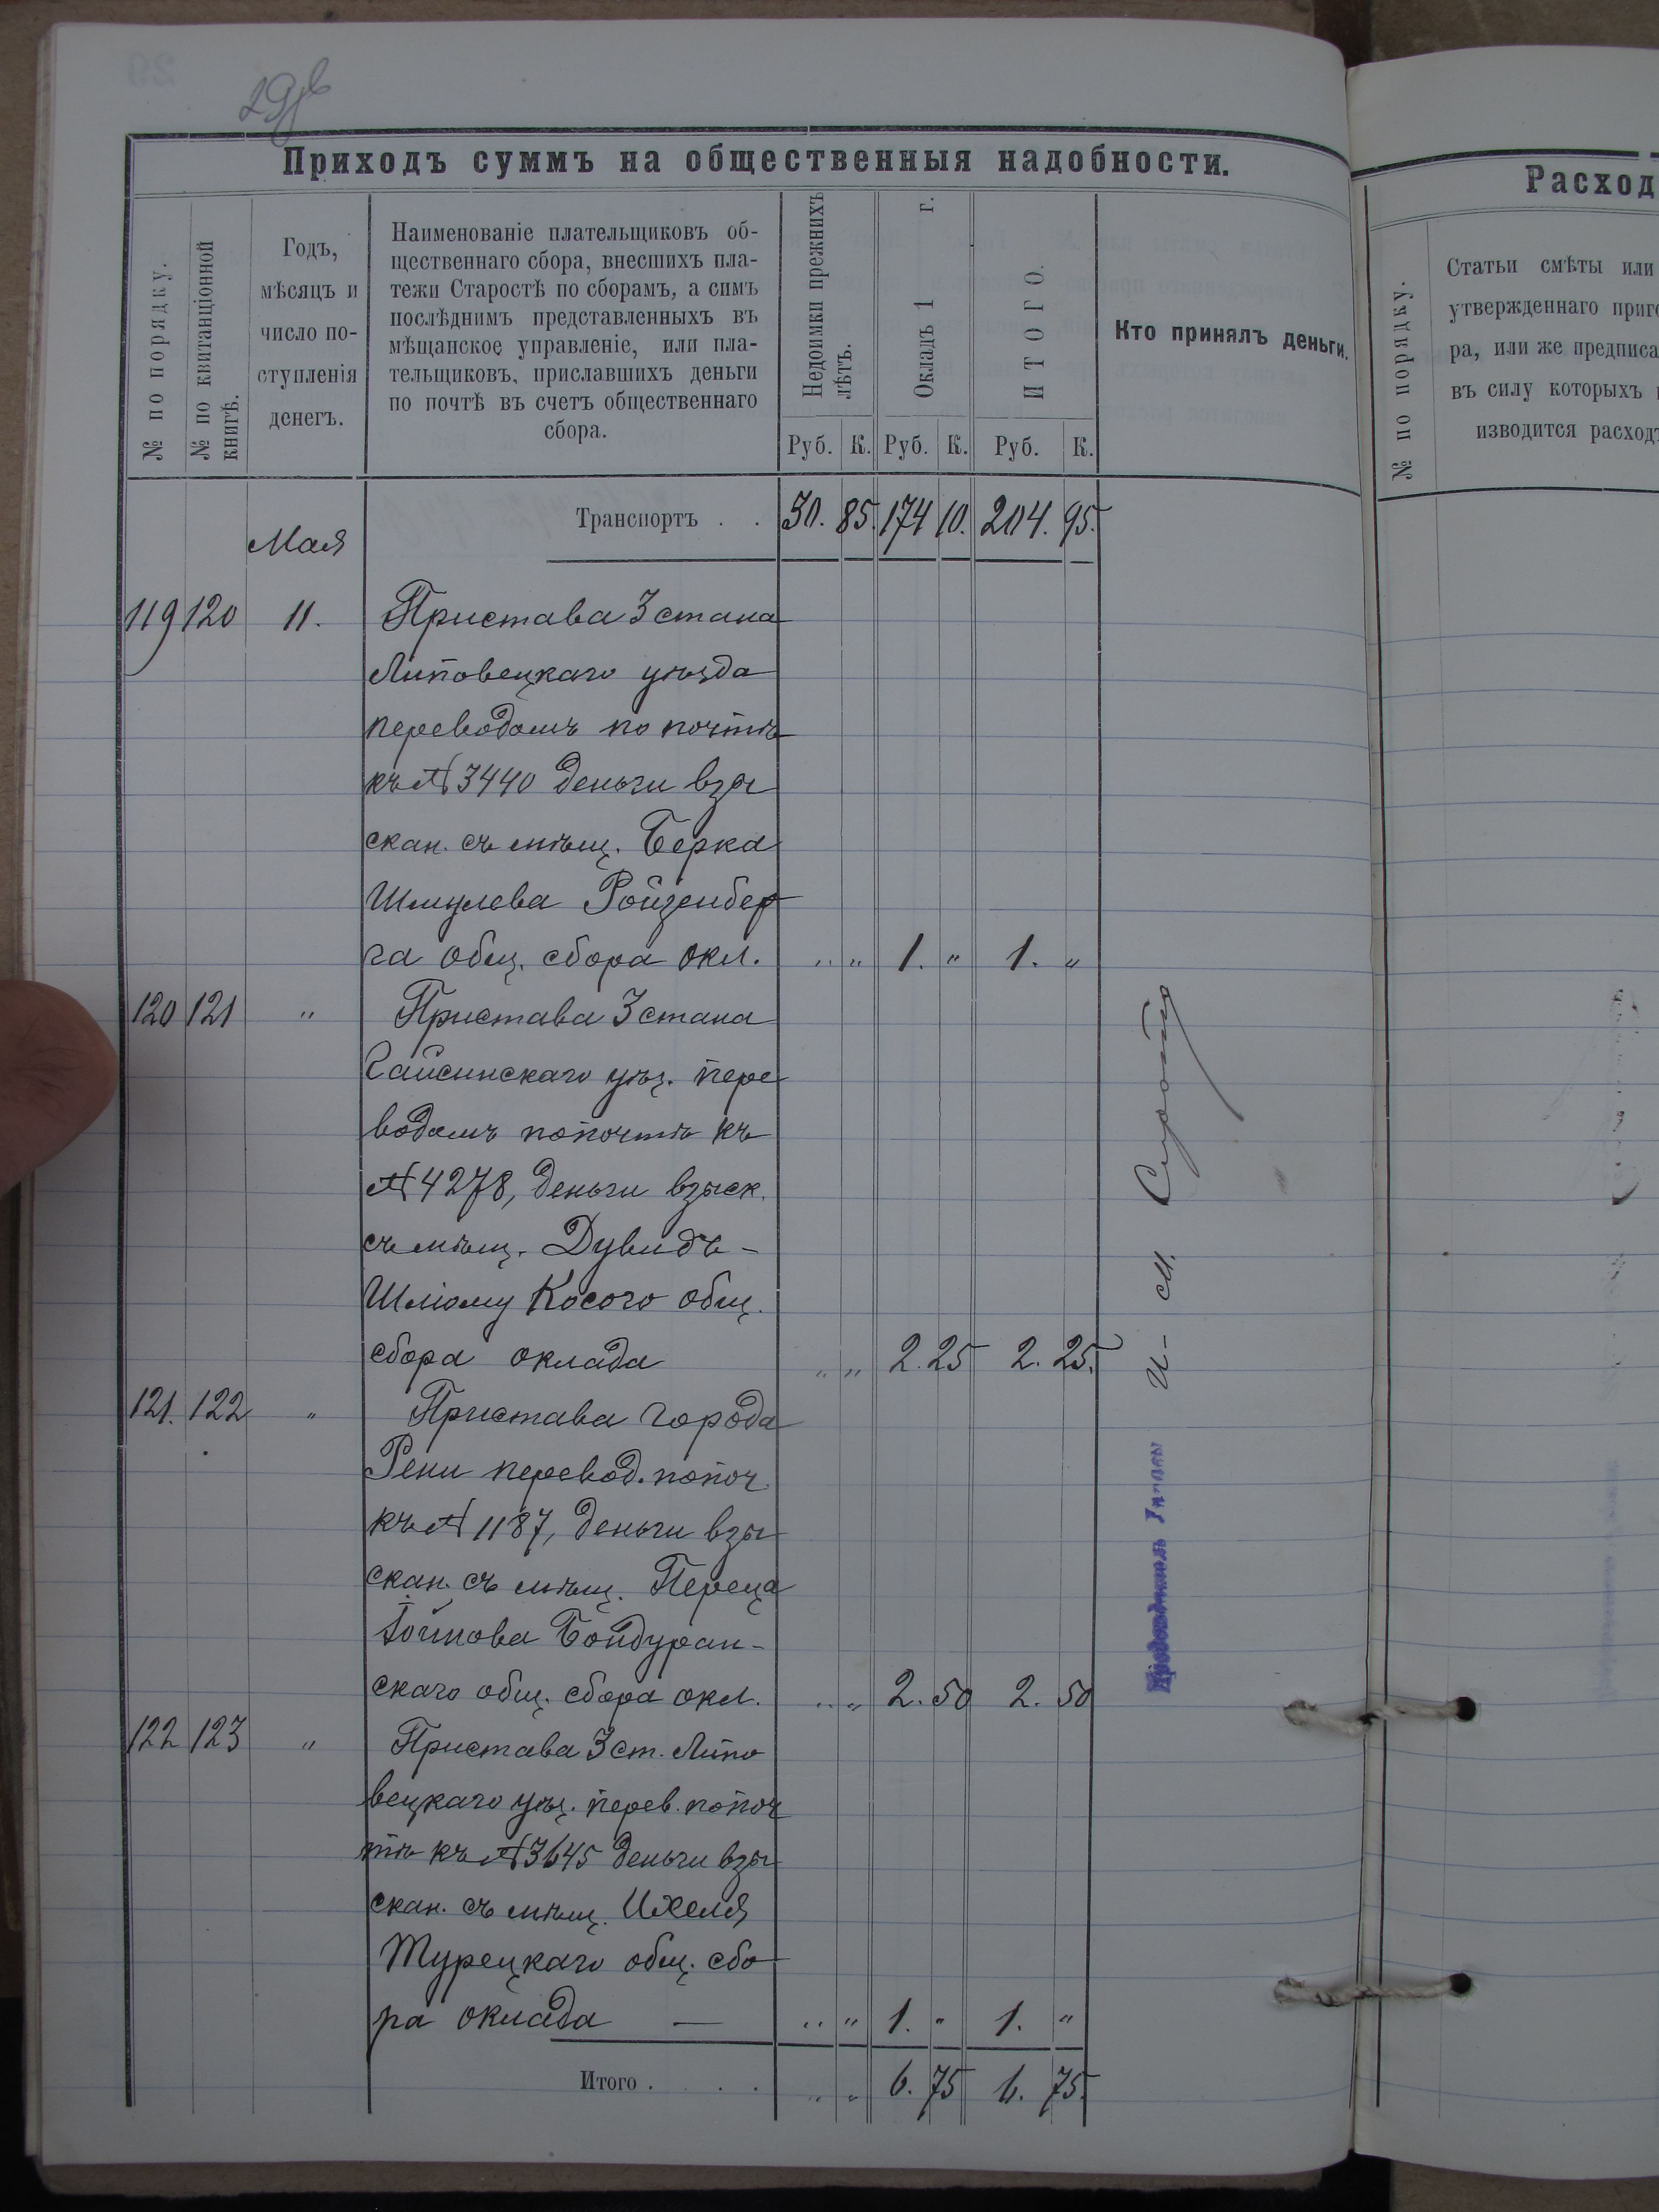 29об
Приходъ суммъ на общественныя надобности.
№ по порядку.
№ по квитанціонной
книгѣ.
Годъ,
мѣсяцъ и
число по-
ступленія
денегъ.
Наименованіе плательщиковъ об-
щественнаго сбора, внесшихъ пла-
тежи Старостѣ по сборамъ, а симъ
послѣднимъ представленныхъ въ
мѣщанское управленіе, или пла-
тельщиковъ, приславшихъ деньги
по почтѣ въ счетъ общественнаго
сбора.
Недоимки прежнихъ
лѣтъ.
Окладъ 1 г.
ИТОГО.
Кто принялъ деньги.
Руб. К. Руб. К. Руб. К.
Транспортъ . . 30. 85. 174 10. 204. 95.
Мая
119 120 11. Пристава 3 стана
Липовецкаго уѣзда
переводомъ по почтѣ
къ № 3440 деньги взы
скан. съ мѣщ. Берка
Шмулева Ройзенбер
га общ. сбора окл. „ „ 1. „ 1. „
120 121 „ Пристава 3 стана
Гайсинскаго уѣз. пере
водомъ попочтѣ къ
№ 4278, деньги взыск.
съ мѣщ. Дувидъ-
Шліому Косого общ.
сбора оклада „ „ 2. 25 2. 25.
121. 122 „ Пристава города
Рени перевод. попоч.
къ № 1187, деньги взы
скан. съ мѣщ. Переца
Іойнова Бондуран-
скаго общ. сбора окл. „ „ 2. 50 2. 50
122 123 „ Пристава 3 ст. Липо
вецкаго уѣз. перев. попоч
тѣ къ № 3645 деньги взы
скан. съ мѣщ. Ихеля
Турецкаго общ. сбо
ра оклада — „ „ 1. „ 1. „
Итого . . . „ „ 6. 75 6. 75.
И- М. Сирота
Расход
№ по порядку.
Статьи смѣты или
утвержденнаго приго
ра, или же предписа
въ силу которыхъ
изводится расходъ